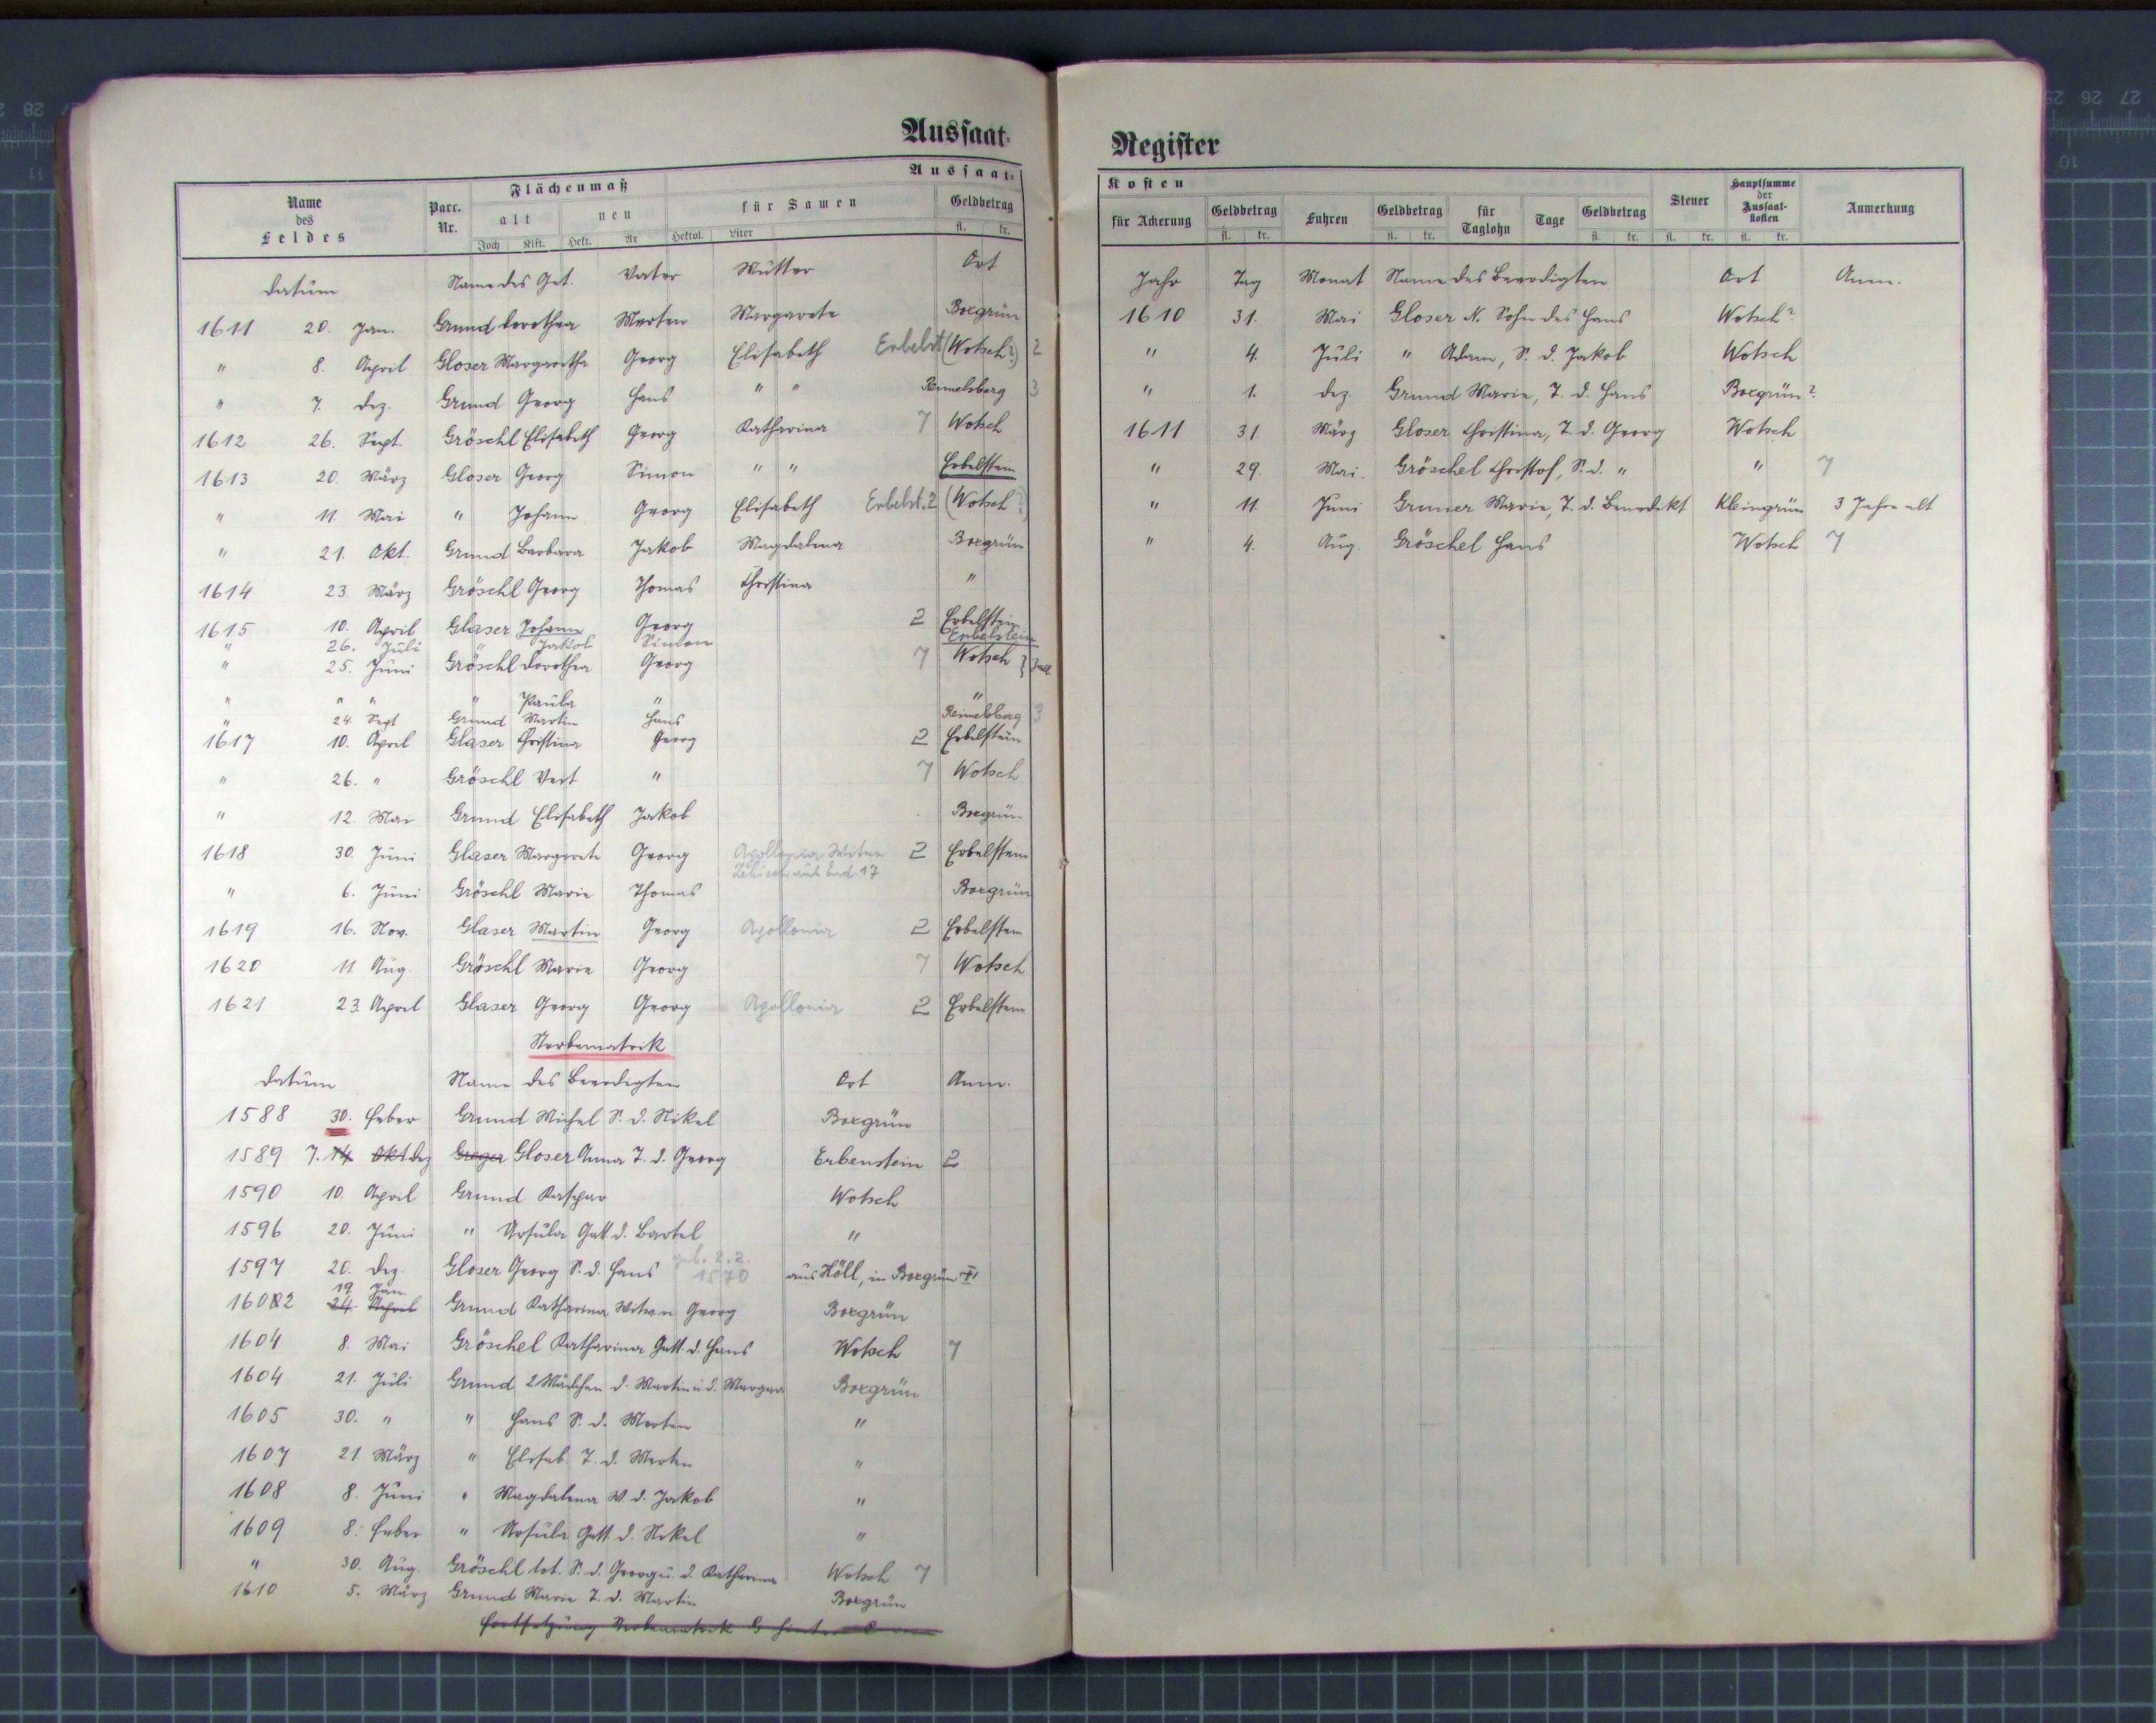 Aussaat-
Name des Feldes Parc. Nr. Flächenmaß Aussaat-
alt neu für Samen Geldbetrag
Joch Klft. Hekt. Ar Hektol. Liter fl. kr.
Datum Name des Get. Vater Mutter Ort
1611 20. Jan. Grund Dorothea Merten Margarete Boxgrün
" 8. April Gloser Margaretha Georg Elisabeth Erbelst (Wotsch?) 2
" 7. Dez. Grund Georg Hans " " Reimelsberg 3
1612 26. Sept. Gröschl Elisabeth Georg Katharina 7 Wotsch
1613 20. März Gloser Georg Simon " " Erbelstein
" 11. Mai " Johann Georg Elisabeth Erbelst. 2 (Wotsch?)
" 21. Okt. Grund Barbara Jakob Magdalena Boxgrün
1614 23. März Gröschl Georg Thomas Christina "
1615 10. April Glaser Johann Georg 2 Erbelstein
" 26. Juli " Jakob Simon Erbelstein
" 25. Juni Gröschl Dorothea Georg 7 Wotsch }
" " " " Paula " "
" 24. Sept Grund Martin Hans Reimelsberg 3
1617 10. April Glaser Christina Georg 2 Erbelstein
" 26. " Gröschl Veit " 7 Wotsch
" 12. Mai Grund Elisabeth Jakob Boxgrün
1618 30. Juni Glaser Margarete Georg Apollonia 2 Erbelstein
17
" 6. Juni Gröschl Marie Thomas Boxgrün
1619 16. Nov. Glaser Martin Georg Apollonia 2 Erbelstein
1620 11. Aug. Gröschl Marie Georg 7 Wotsch
1621 23. April Glaser Georg Georg Apollonia 2 Erbelstein
Sterbematrik
Datum Name des Beerdigten Ort Anm.
1588 30. Feber Grund Michel S. d. Nikel Boxgrün
1589 7. 14. Okt Dez Greger Gloser Anna T. d. Georg Erbenstein 2
1590 10. April Grund Kaspar Wotsch
1596 20. Juni " Ursula Gatt. d. Bartel "
1597 20. Dez. Gloser Georg S. d. Hans geb. 2.2. 1570 aus Höll, in Boxgrün †
19. Jan.
1602 24. April Grund Katharina Witwe n Georg Boxgrün
1604 8. Mai Gröschel Katharina Gatt. d. Hans Wotsch 7
1604 21. Juli Grund 2 Mädchen d. Martin u. d. Margar Boxgrün
1605 30. " " Hans S. d. Merten "
1607 21. März " Elisab. T. d. Merten "
1608 8. Juni " Magdalena W d. Jakob "
1609 8. Feber " Ursula Gatt. d. Nikel "
" 30. Aug. Gröschl tot. S. d. Georg u. d. Katharina Wotsch 7
1610 5. März Grund Marie T. d. Martin Boxgrün
Fortsetzung Sterbematrik G
Register
Kosten
für Ackerung Geldbetrag Fuhren Geldbetrag für Taglohn Tage Geldbetrag Steuer Hauptsumme der Aussaat-kosten Anmerkung
fl. kr. fl. kr. fl. kr. fl. kr. fl. kr.
Jahr Tag Monat Name des Beerdigten Ort Anm.
1610 31. Mai Gloser N. Sohn des Hans Wotsch?
" 4. Juli " Adam, S. d. Jakob Wotsch
" 1. Dez. Grund Marie, T. d. Hans Boxgrün?
1611 31. März Gloser Christina, T. d. Georg Wotsch
" 29. Mai. Gröschel Christof, S. d. " " 7
" 11. Juni Gruner Marie, T. d. Benedikt Kleingrün 3 Jahre alt
" 4. Aug. Gröschel Hans Wotsch 7